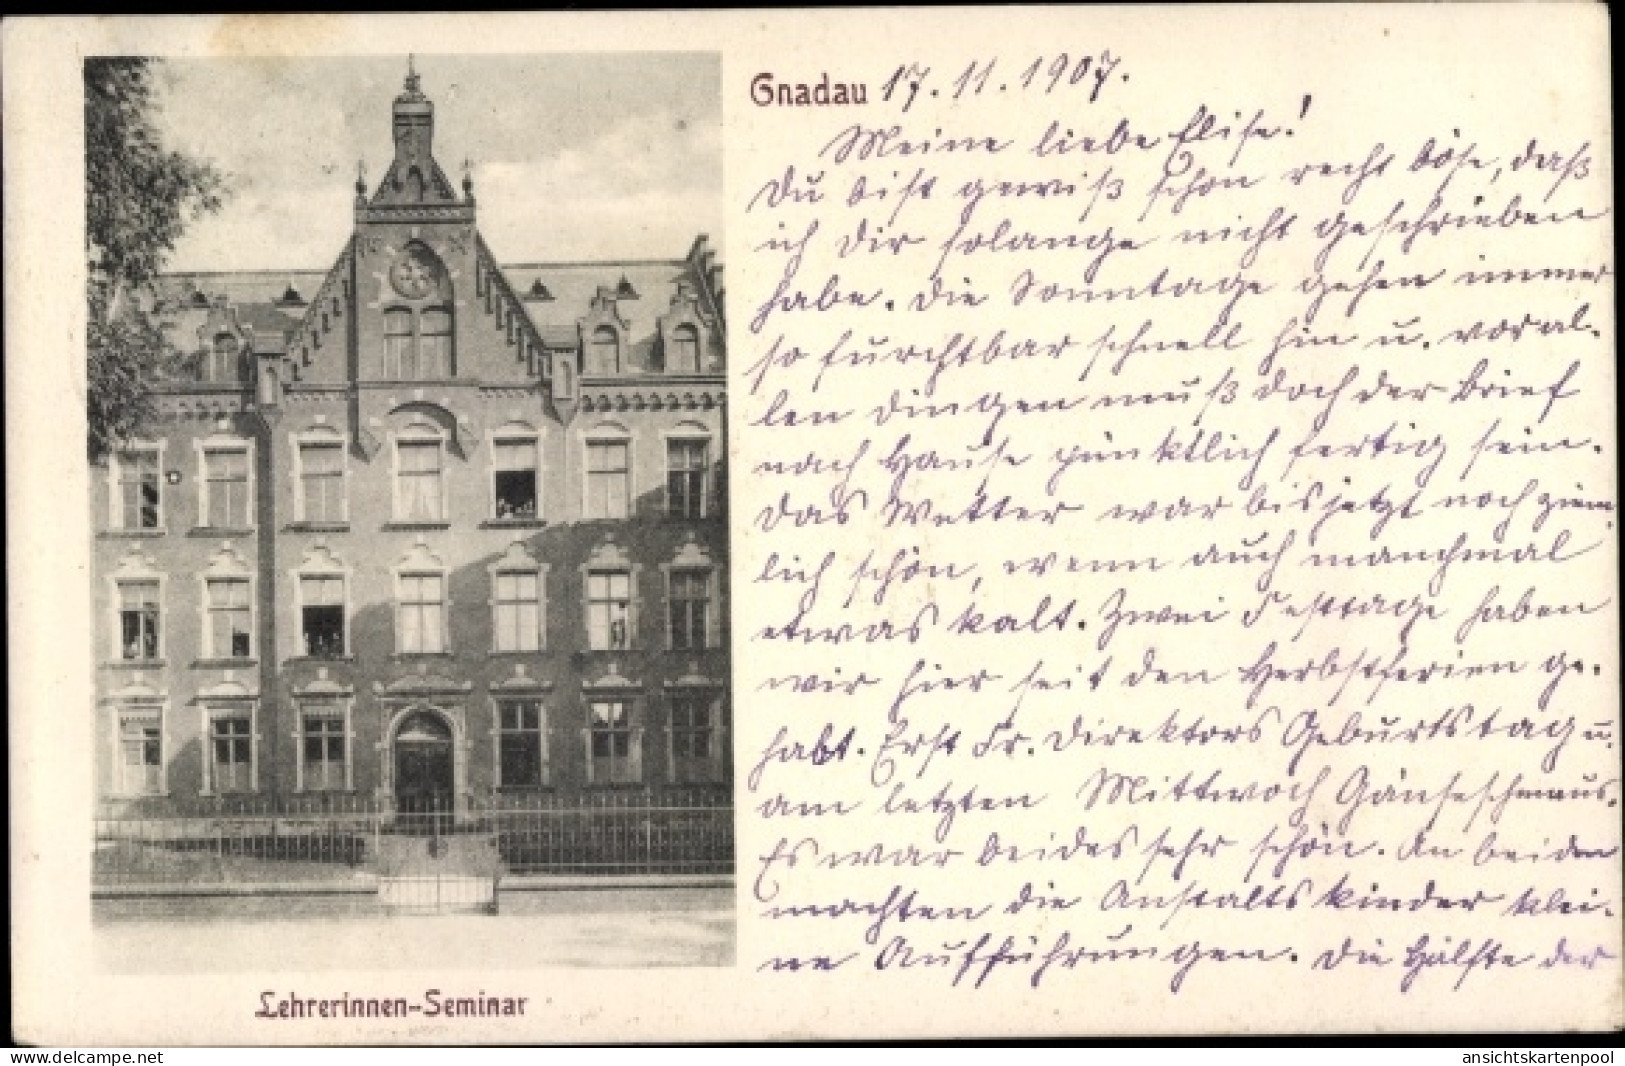 Gnadau 17. 11. 1907.
Meine liebe Elise!
Du bist gewiß schon recht böse, daß
ich Dir solange nicht geschrieben
habe. Die Sonntage gehen immer
so furchtbar schnell hin u. vor al-
len Dingen muß doch der Brief
nach Hause pünktlich fertig sein.
Das Wetter war bis jetzt noch ziem-
lich schön, wenn auch manchmal
etwas kalt. Zwei Festtage haben
wir hier seit den Herbstferien ge-
habt. Erst Fr. Direktors Geburtstag u.
am letzten Mittwoch Gänseschmaus.
Es war beides sehr schön. An beiden
machten die Anstaltskinder klei-
ne Aufführungen. Die Hälfte der
Lehrerinnen-Seminar
www.delcampe.net
ansichtskartenpool